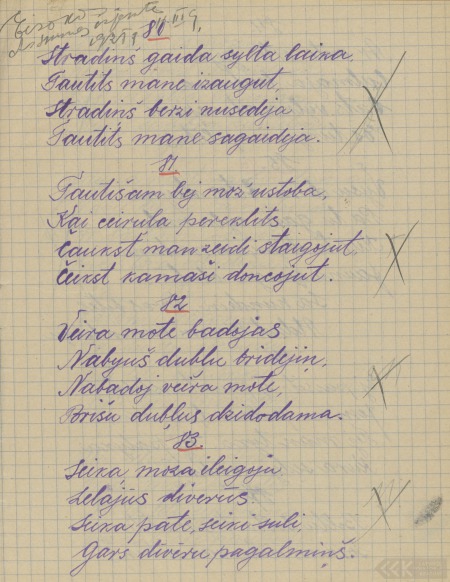 80
Stradinš gaida sylta laika,
Tautits mane izaugut,
Stradinš berzi nusedija
Tautits mane sagaidija.
81
Tautišam bej moz' ustoba,
Kai ceirula pereklits,
Čaukst man zeidi staigojut,
Čeikst kamaši doncojut.
82
Veira mote badojas
Nabyuš dubļu bridejiņ,
Nabadoj veira mote,
Brišu dubļus dzidodama.
83.
Seika, moza ileigoju
Lelajūs diverūs.
Seika pate, seiki suli,
Gars diveru pagalmiņš.